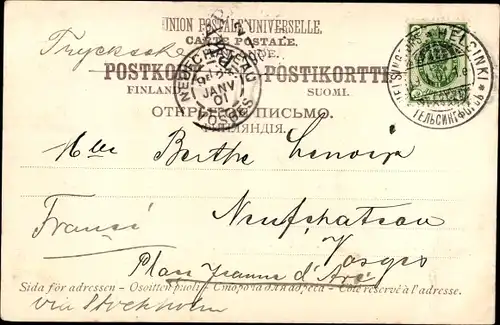 UNION POSTALE UNIVERSELLE.
CARTE POSTALE.
Trycksak
POSTKORT POSTIKORTTI
FINLAND. SUOMI.
ОТКРЫТОЕ ПИСЬМО.
ФИНЛЯНДІЯ.
JANV
01
VOSGES
HELSINKI
ГЕЛЬСИНГФОРСЪ
Mlle Berthe Lenoir
Neufchateau
Vosges
Place Jeanne d'Arc
Sida för adressen – Osoitten puoli – Сторона для адреса – Côté réservé à l'adresse.
via Stockholm